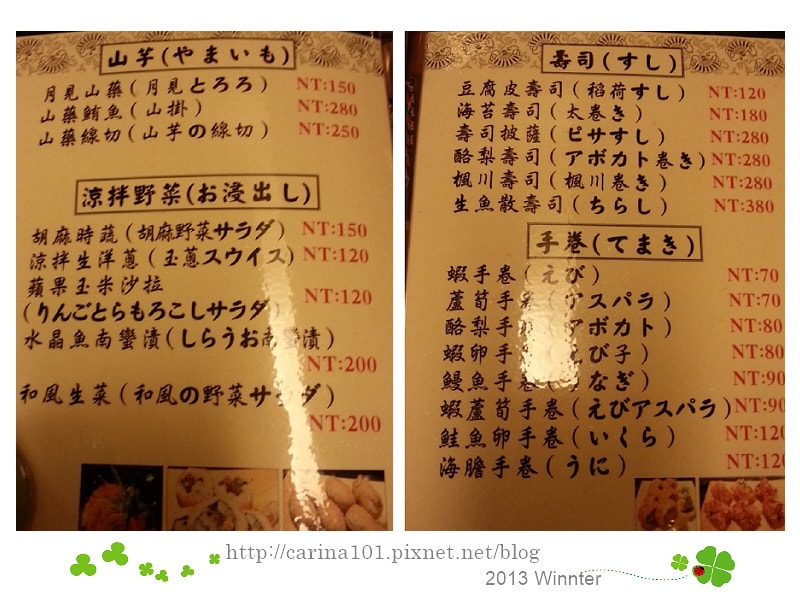 山芋(やまいも)
月見山藥(月見とろろ) NT:150
山藥鮪魚(山掛) NT:280
山藥線切(山芋の線切) NT:250
涼拌野菜(お浸出し)
胡麻時蔬(胡麻野菜サラダ) NT:150
涼拌生洋蔥(玉蔥スウイス) NT:120
蘋果玉米沙拉
(りんごとらもろこしサラダ) NT:120
水晶魚南蠻漬(しらうお南蠻漬)
NT:200
和風生菜(和風の野菜サラダ)
NT:200
壽司(すし)
豆腐皮壽司(稻荷すし) NT:120
海苔壽司(太卷き) NT:180
壽司披薩(ピサすし) NT:280
酪梨壽司(アボカト卷き) NT:280
楓川壽司(楓川卷き) NT:280
生魚散壽司(ちらし) NT:380
手卷(てまき)
蝦手卷(えび) NT:70
蘆筍手卷(アスパラ) NT:70
酪梨手卷(アボカト) NT:80
蝦卵手卷(えび子) NT:80
鰻魚手卷(うなぎ) NT:90
蝦蘆筍手卷(えびアスパラ) NT:90
鮭魚卵手卷(いくら) NT:120
海膽手卷(うに) NT:120
http://carina101.pixnet.net/blog
2013 Winnter